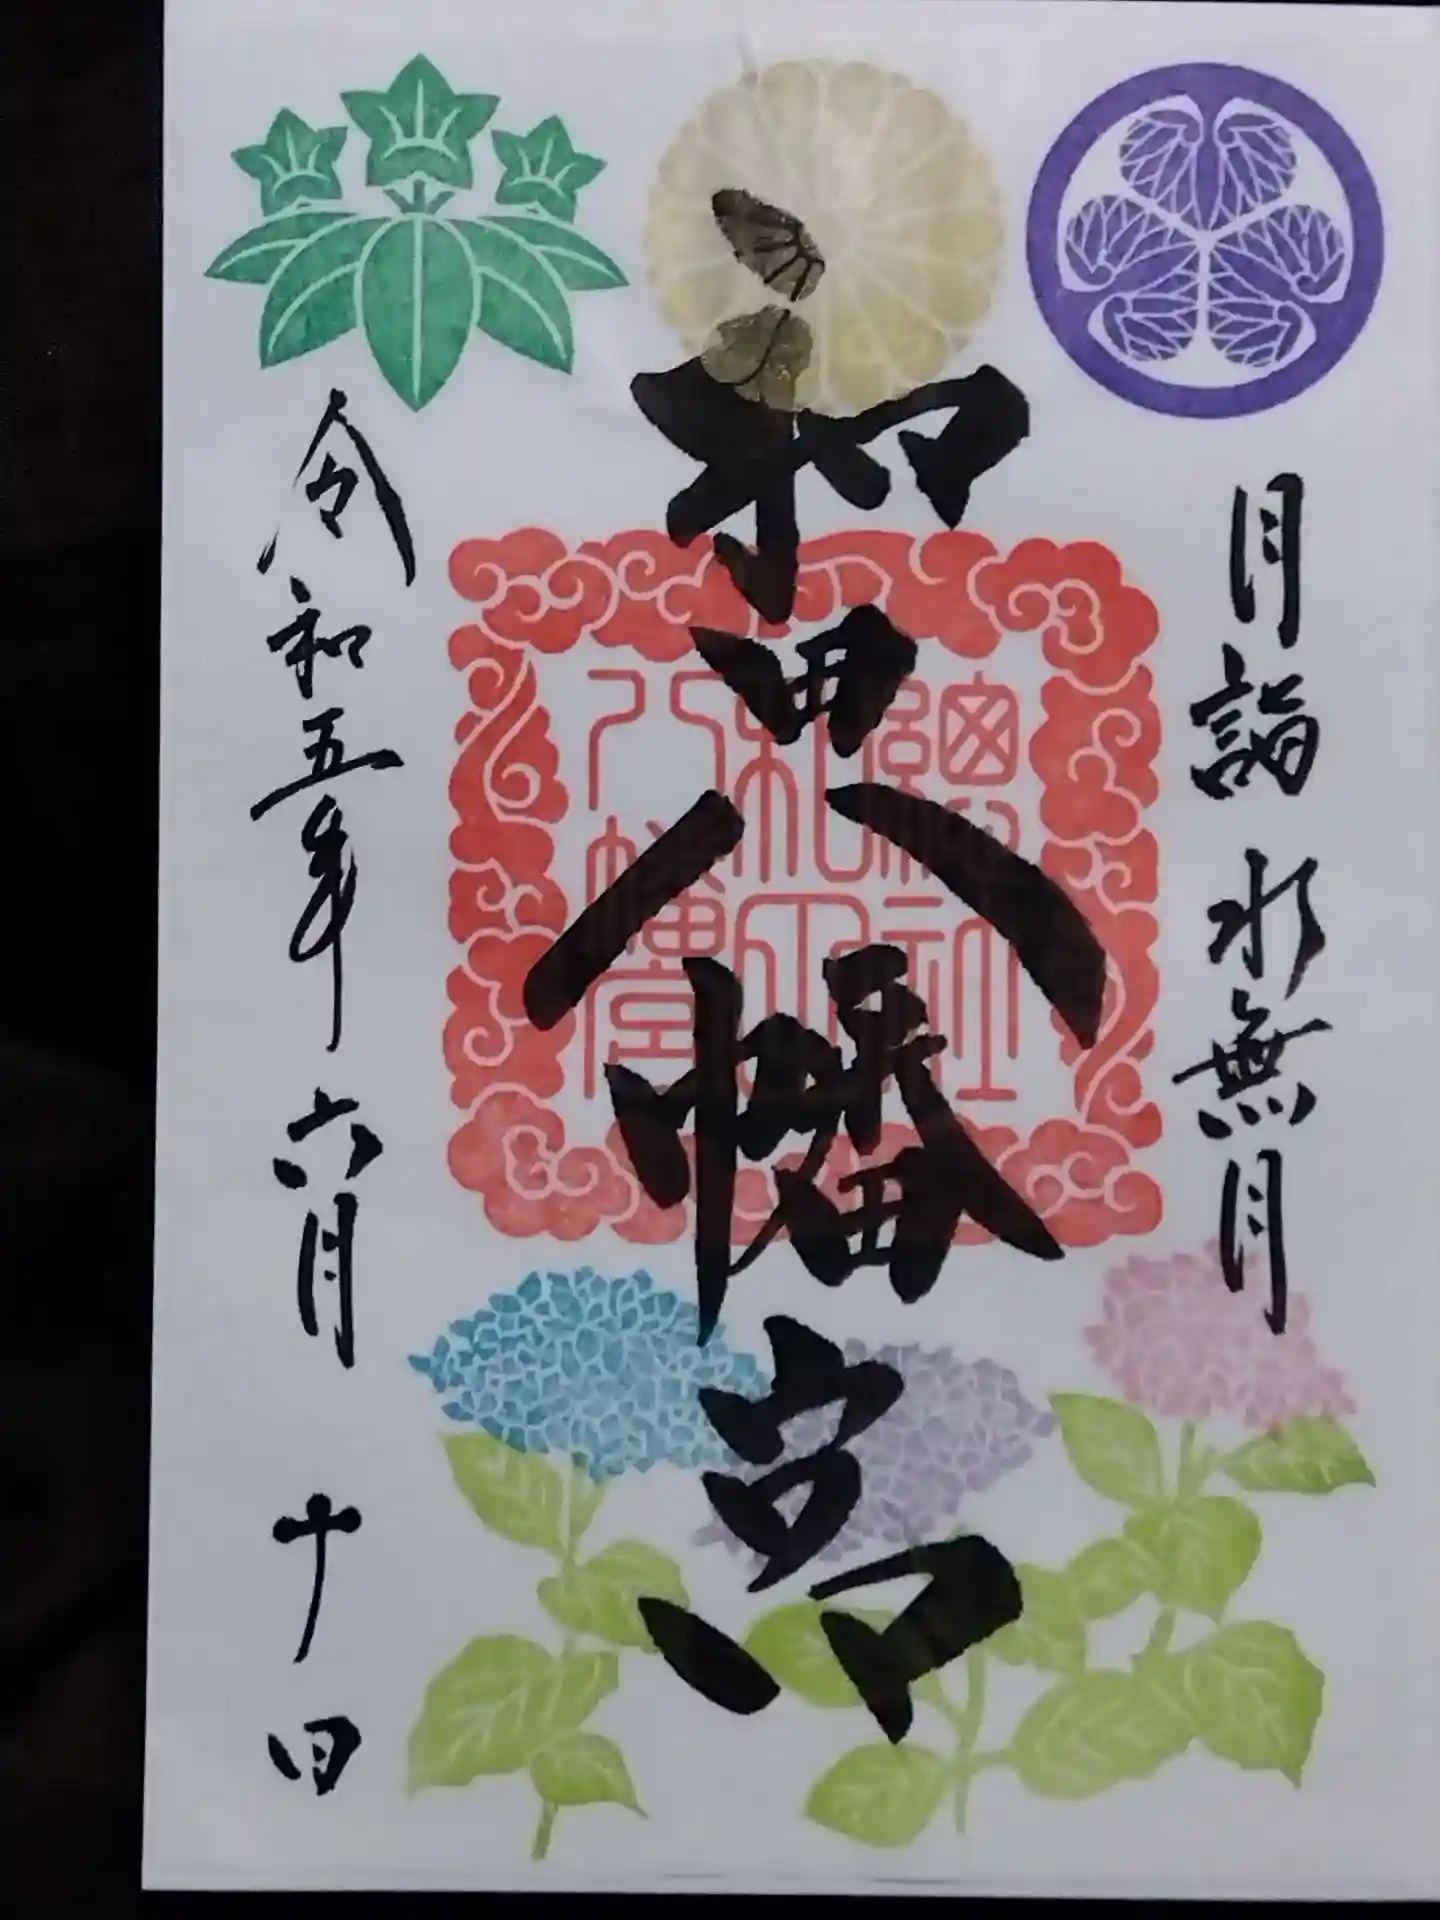 月詣 水無月
和田八幡宮
總社
和田
八幡宮
令和五年 六月 十日